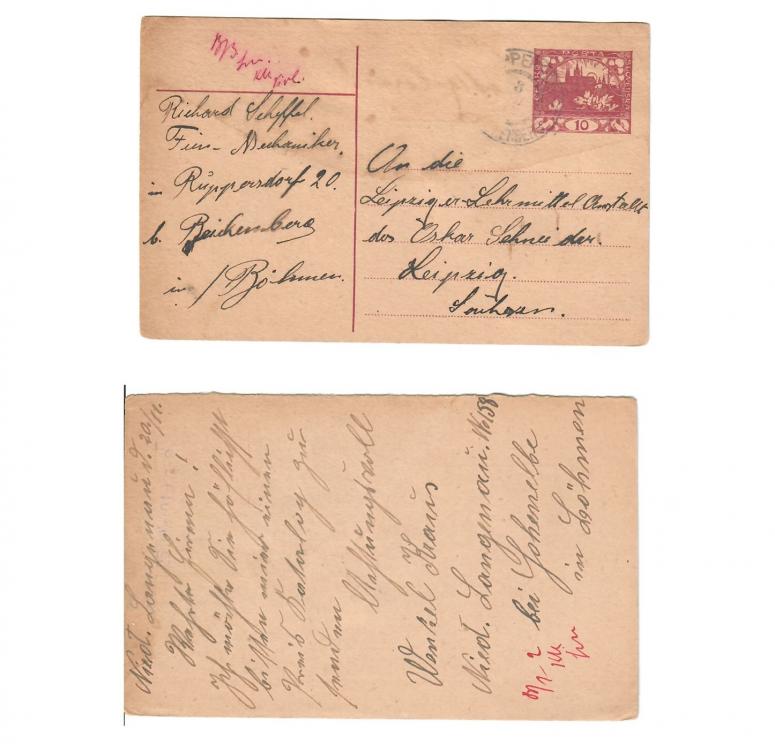 Richard Scheffel.
Fein-Mechaniker.
in Ruppersdorf 20.
b. Reichenberg
in / Böhmen.
POŠTA
10
An die
Leipziger-Lehrmittel Anstalt
des Oskar Schneider.
Leipzig.
Sachsen.
Nied. Langenau d. 20/11.
Werte Firma!
Ich möchte Sie höflichst
bitten mir einen
Preis Katalog zu
senden
Achtungsvoll
Wenzel Kraus
Nied. Langenau. 158
bei Hohenelbe
in Böhmen